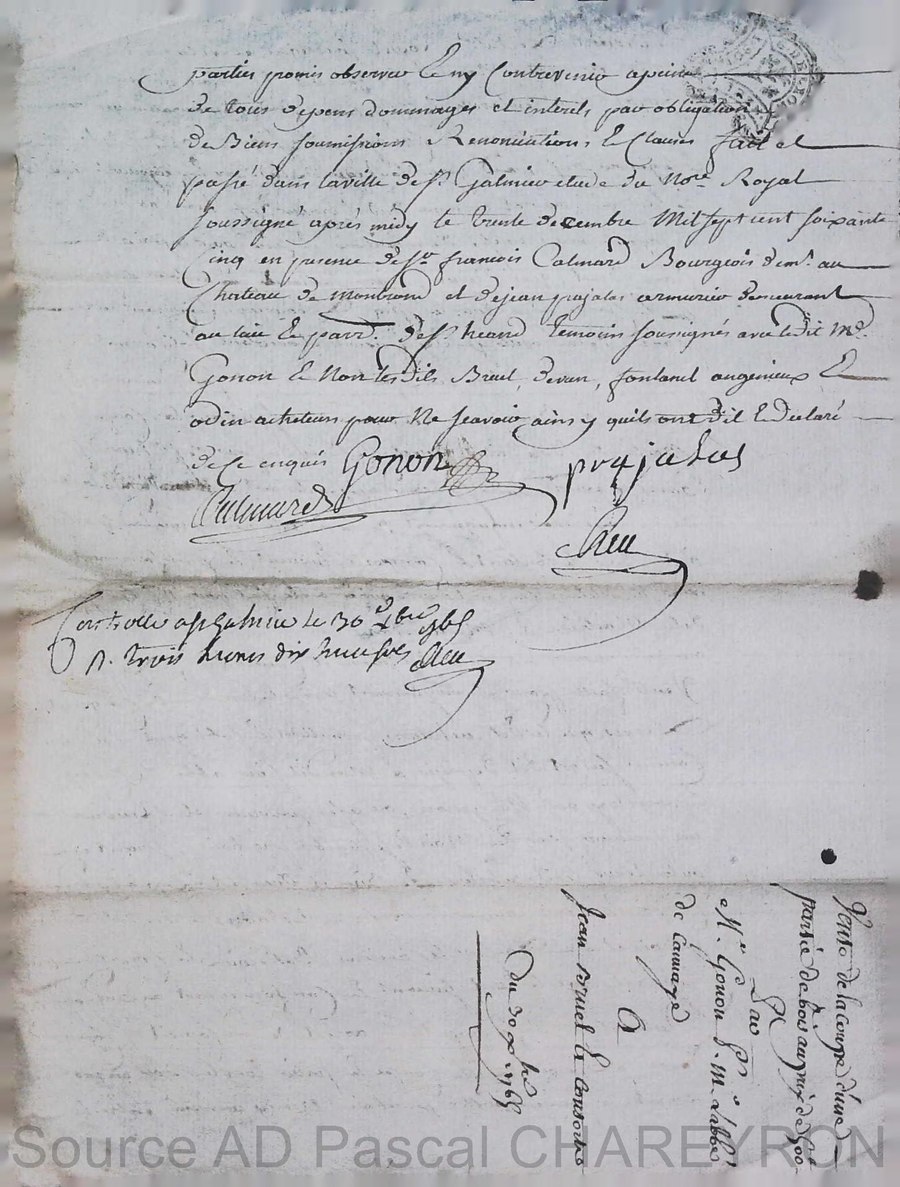 parties promis observer Et ny Contrevenir a peine
de tous depens dommages et interets par obligation
de Biens soumissions Renonciations Et Clauses fait et
passé dans la ville de St Galmier etude du Nore Royal
soussigné après midy le trente decembre Mil sept cent soixante
Cinq en presence de Sr françois Calmard Bourgeois dem.t au
Chateau de Montrond et de jean prajalas armurier demeurant
au lieu Et parr. de St heand temoins soussignés avec ledit Md.
Gonon Et Non lesdits Bruel, devan, fontanel augenieux Et
odin acheteurs pour Ne scavoir ainsy quils ont dit Et declaré
de ce enquis Gonon
prajalas
Calmard
Controllé a St Galmier le 30 xbre 1765
R. trois livres dix huit sols
Vente de la coupe d'une
partie de bois au prix de 
Par
Mr Gonon P. Mr L'abbé
de
A
Jean Bruel Et Consorts
du 30 xbre 1765
Source AD Pascal CHAREYRON